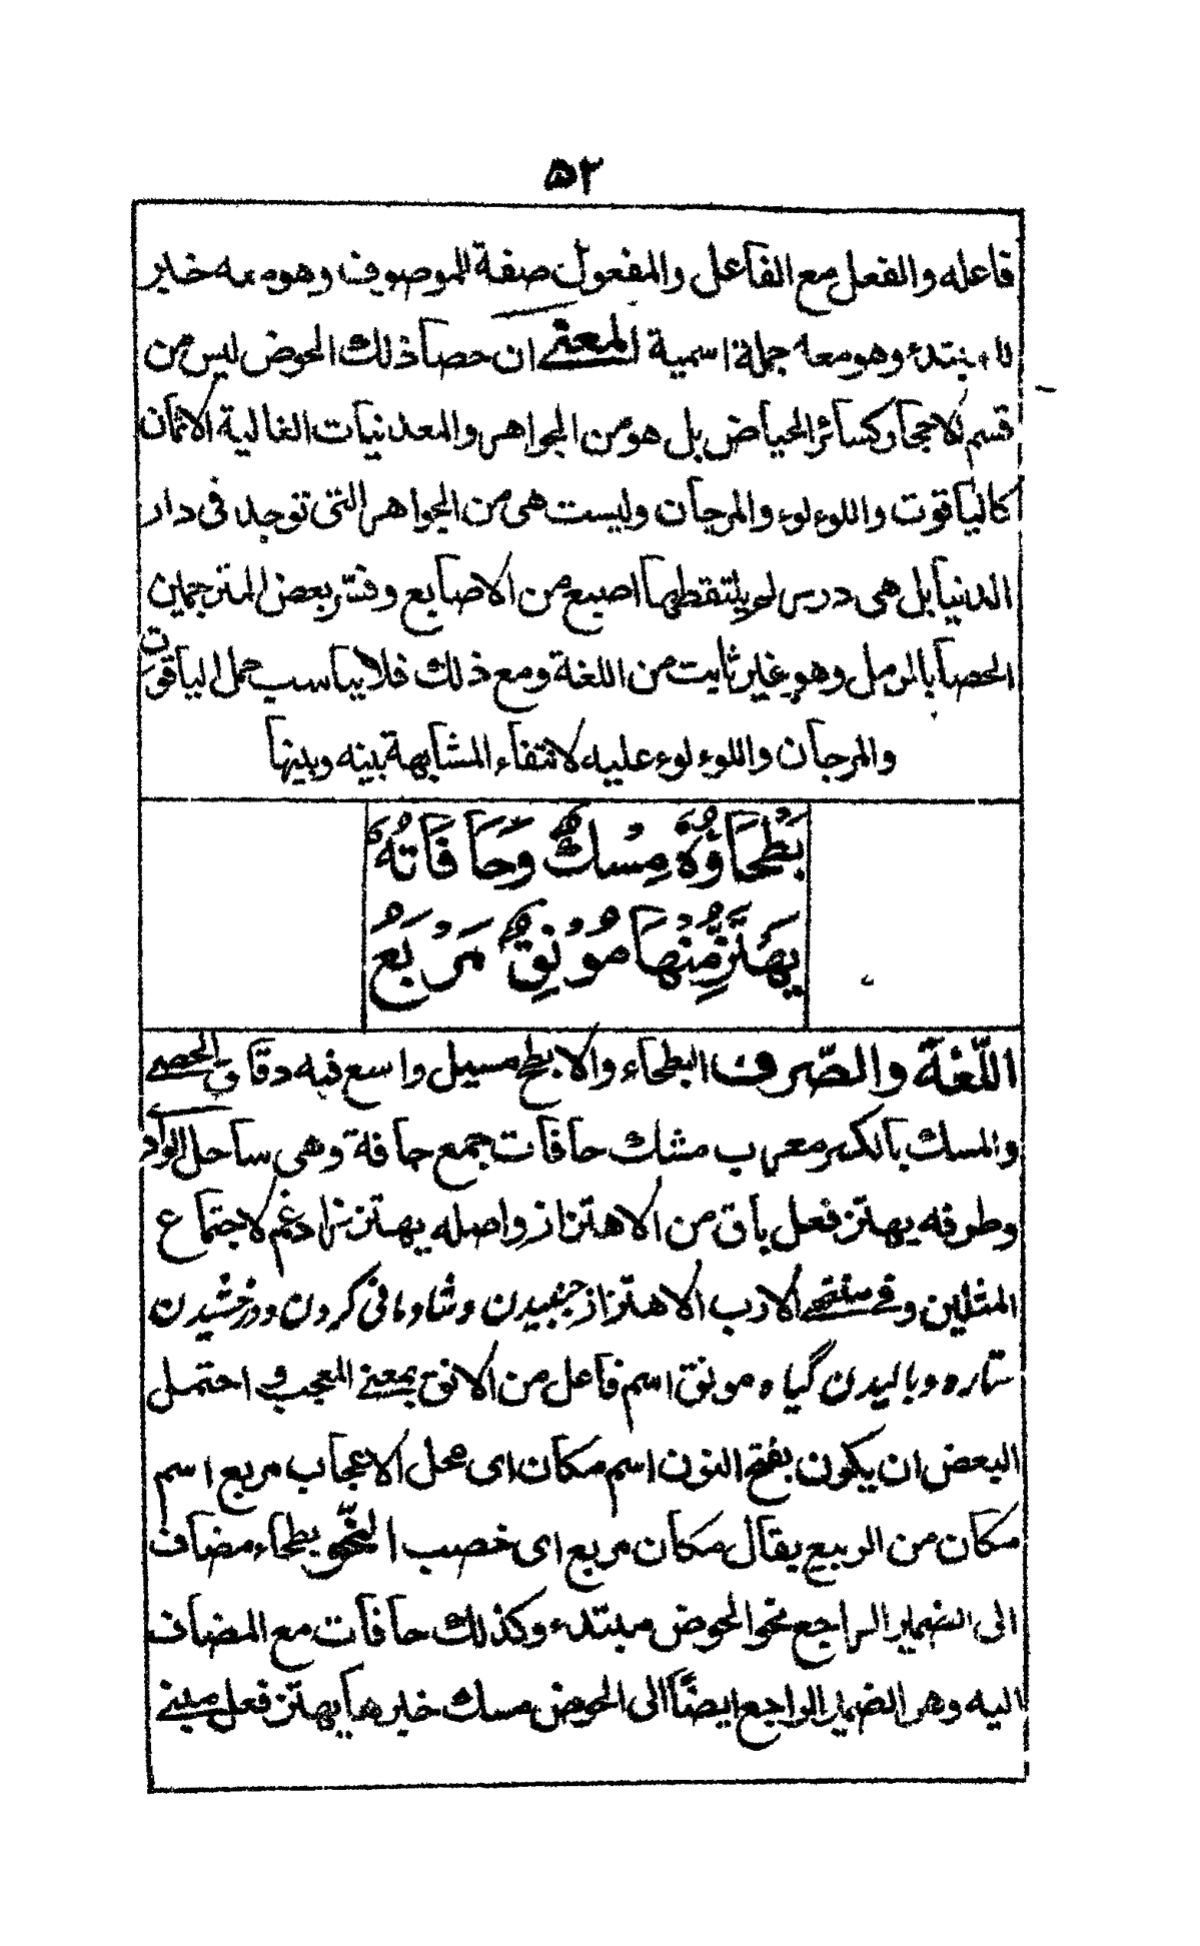 ۵۲
فاعله والفعل مع الفاعل والمفعول صفة للموصوف وهو معه خبر
للمبتدء وهو معه جملة اسمية المعنے ان حصا ذلك الحوض ليس من
قسم الاحجار كسائر الحياض بل هو من الجواهر والمعدنيات الغالية الاثمان
كالياقوت واللوءلوء والمرجان وليست هى من الجواهر التى توجد فى دار
الدنيا بل هى درس لم يلتقطها اصبع من الاصابع وفسّر بعض المترجمين
الحصا بالرمل وهو غير ثابت من اللغة ومع ذلك فلا يناسب حمل الياقوت
والمرجان واللوءلوء عليه لانتفاء المشابهة بينه وبينها
بَطْحَاؤُهُ مِسْكٌ وَحَافَاتُهُ
يَهْتَزُّ مِنْهَا مُوْنِقٌ مَرْبَعُ
اللّغة والصّرف البطحاء والابطح مسيل واسع فيه دقاق الحصے
والمسك بالكسر معرب مشك حافات جمع حافة وهى ساحل الواد
وطرفه يهتز فعل باق من الاهتزاز واصله يهتزز ادغم لاجتماع
المثلين وفے منتهے الارب الاهتزاز جنبيدن وشادمانى كردن ودرخشيدن
ستاره وباليدن گياه مونق اسم فاعل من الانق بمعنے المعجب و احتمل
البعض ان يكون بفتح النون اسم مكان اى محل الاعجاب مربع اسم
مكان من الربيع يقال مكان مربع اى خصب النّحو بطحاء مضاف
الى الضمير الراجع نحو الحوض مبتدء وكذلك حافات مع المضاف
اليه وهر الضمير الراجع ايضًا الى الحوض مسك خبرها يهتز فعل مبنے